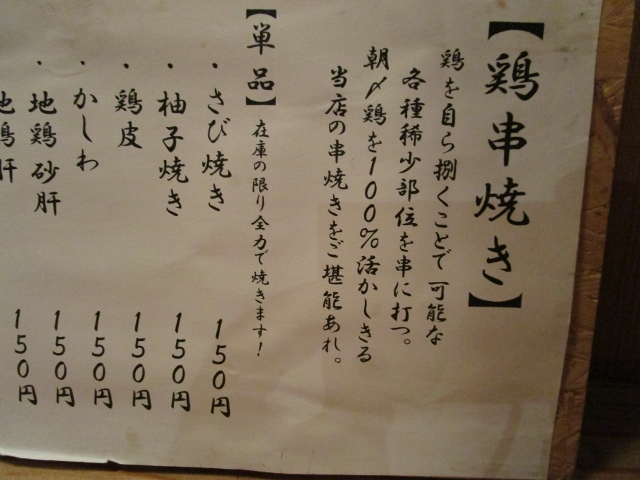 【鶏串焼き】
鶏を自ら捌くことで可能な
各種稀少部位を串に打つ。
朝〆鶏を100%活かしきる
当店の串焼きをご堪能あれ。
【単品】在庫の限り全力で焼きます!
・さび焼き 150円
・柚子焼き 150円
・鶏皮 150円
・かしわ 150円
・地鶏砂肝 150円
地鶏肝 150円